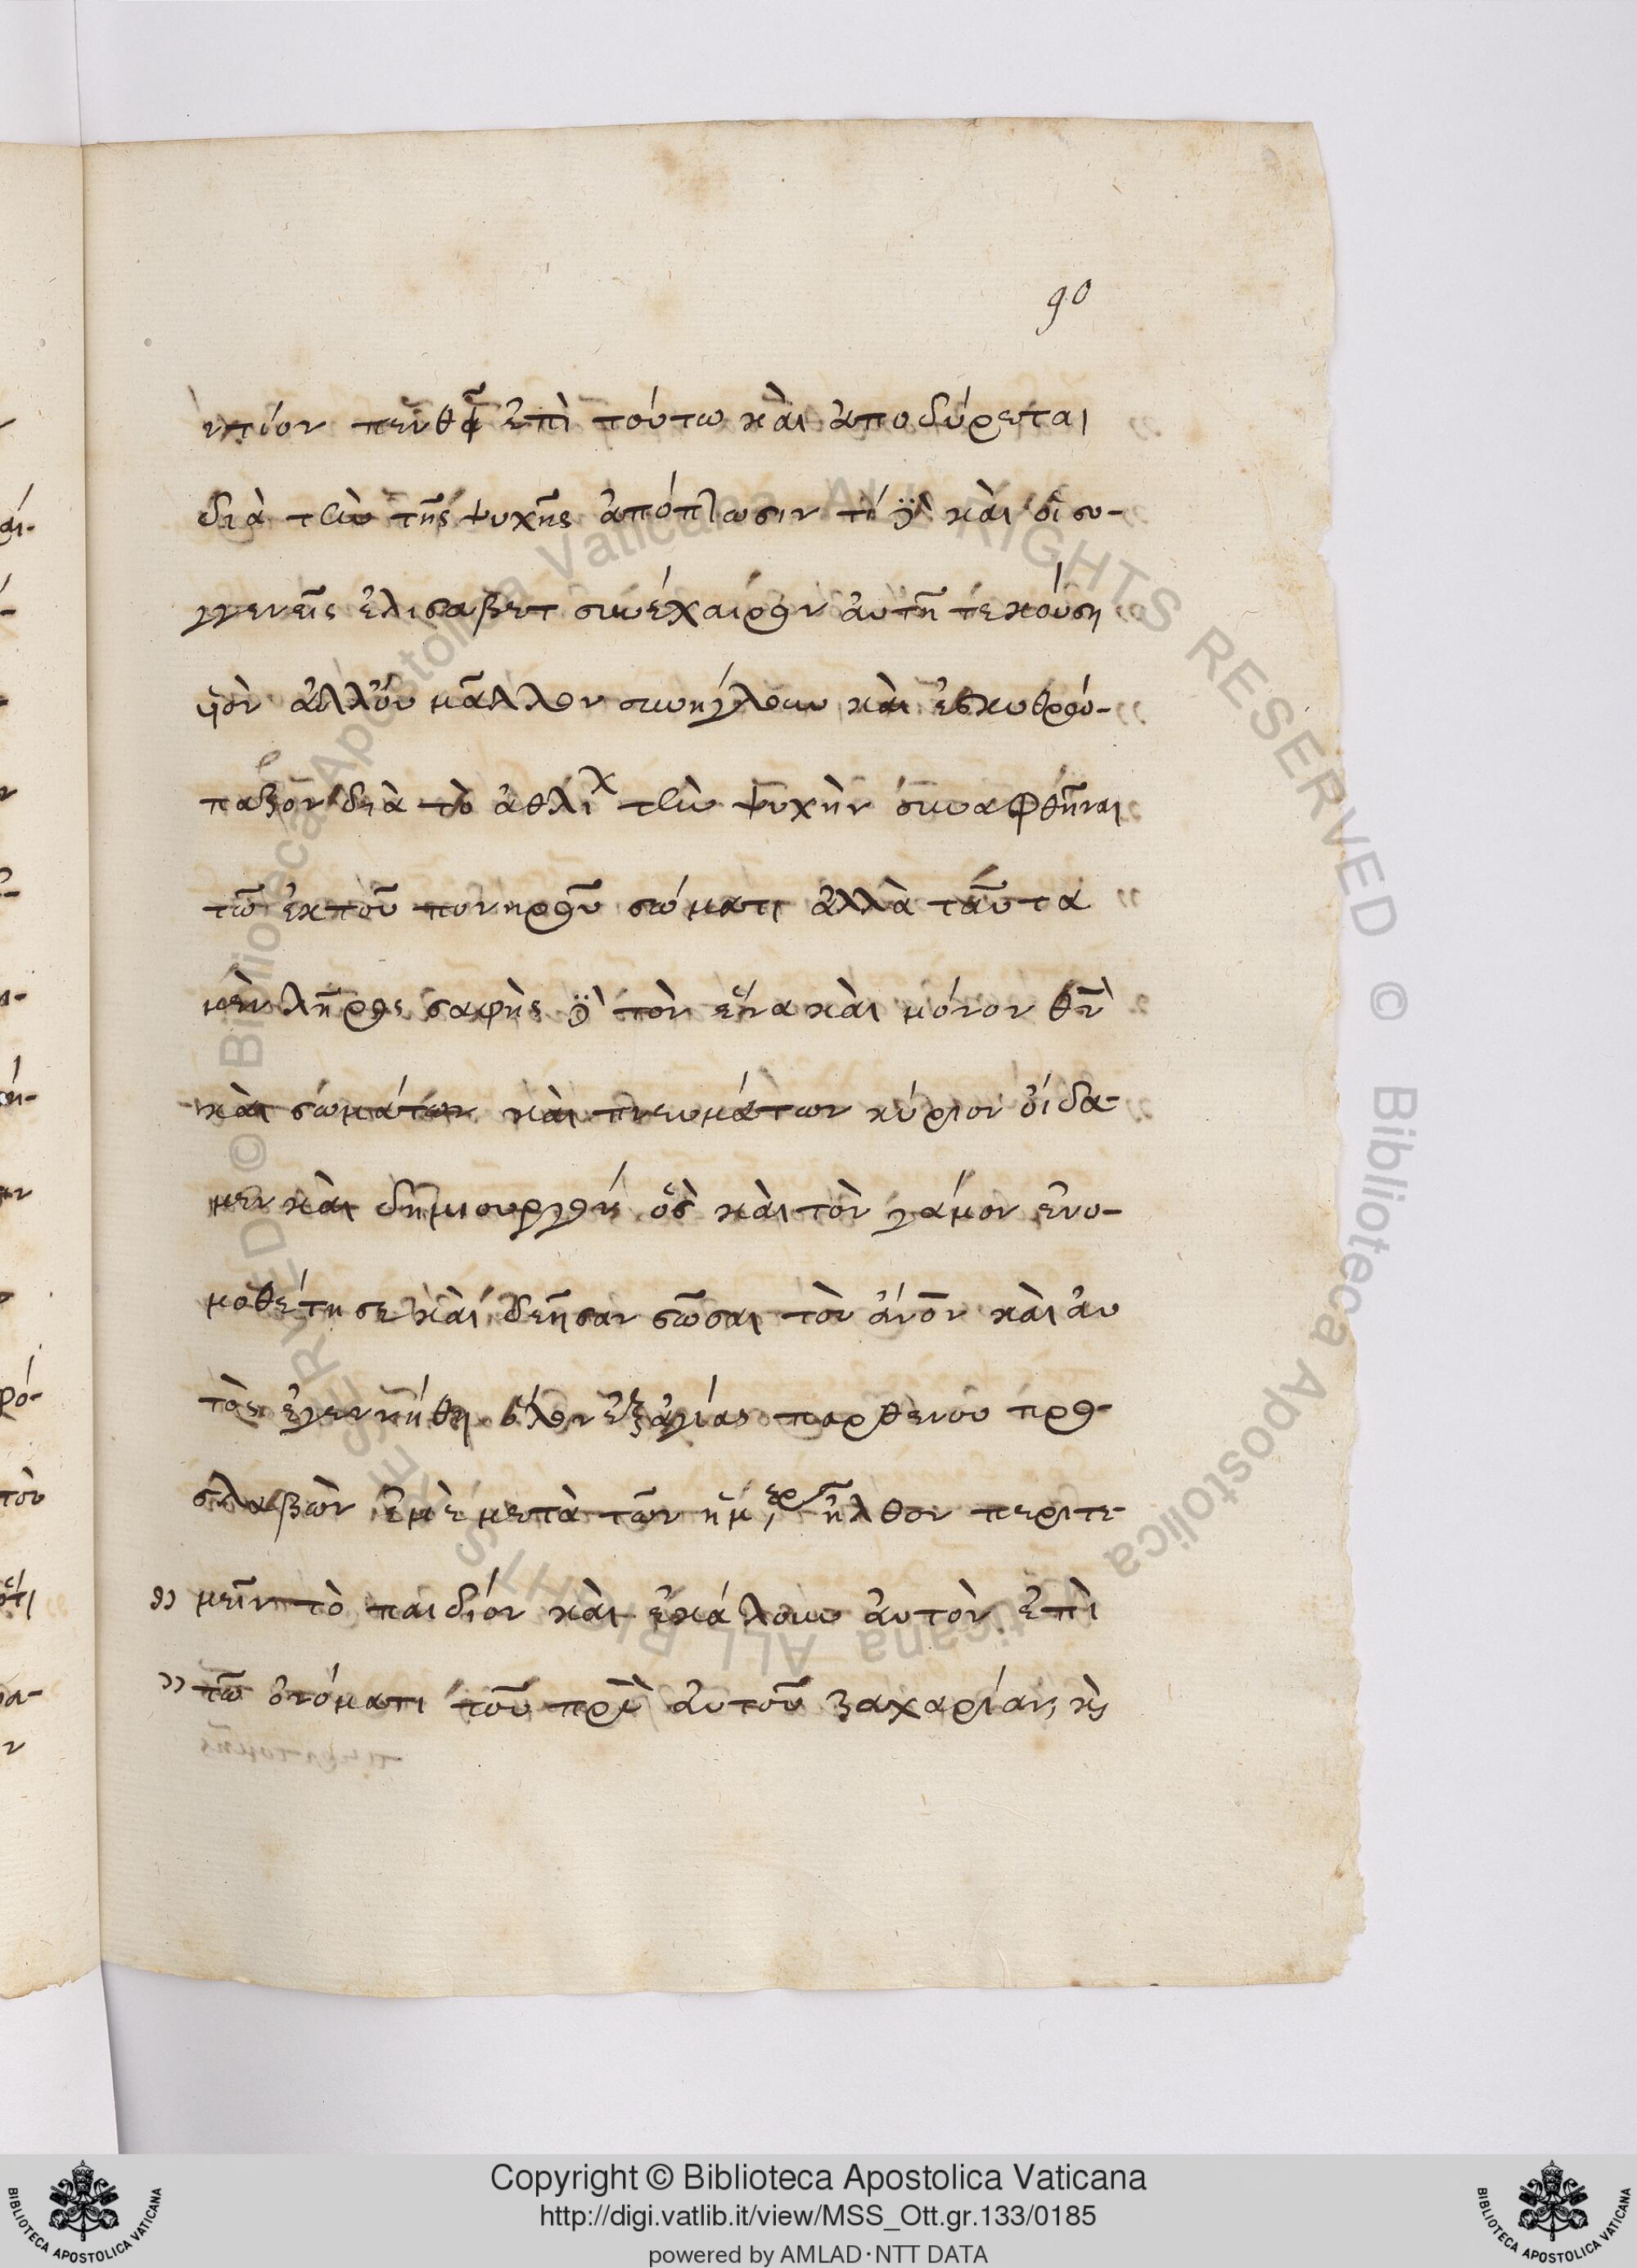 90
ντίον πενθεῖ ἐπὶ τούτω καὶ ἀποδύρεται
διὰ τὴν τῆς ψυχῆς ἀπόπτωσιν τί δὲ καὶ οἱ συ-
γγενεῖς ἐλισαβετ συνέχαιρον αὐτῆ τεκούση
ἀλλ' οὐ μᾶλλον συνήλγουν καὶ ἐσκυθρώ-
παζον διὰ τὸ ἀθλί τὴν ψυχὴν συναφθῆναι
τῶ ἐκ τοῦ πονηροῦ σώματι ἀλλὰ ταῦτα
μὲν λῆρος σαφὴς δὲ τὸν ἕνα καὶ μόνον θν
καὶ σωμάτων καὶ πνευμάτων κύριον οἴδα-
μεν καὶ δημιουργόν ὃς καὶ τὸν γάμον ἐνο-
μοθέτησε καὶ δεῆσαν σῶσαι τὸν ἄνον καὶ αυ
τὸς ἐγεννήθη ὅλον ἐξ ἁγίας παρθένου προ-
σλαβὼν ἐμὲ μετὰ τῶν ἡμερ ἦλθον περιτε-
" μεῖν τὸ παιδίον καὶ ἐκάλουν αὐτὸν ἐπὶ
" τῶ ὀνόματι τοῦ πρς αὐτοῦ ζαχαρίαν, κς
Copyright © Biblioteca Apostolica Vaticana
http://digi.vatlib.it/view/MSS_Ott.gr.133/0185
powered by AMLAD·NTT DATA
BIBLIOTECA APOSTOLICA VATICANA
BIBLIOTECA APOSTOLICA VATICANA
© Biblioteca Apostolica Vaticana ALL RIGHTS RESERVED © Biblioteca Apostolica Vaticana ALL RIGHTS RESERVED